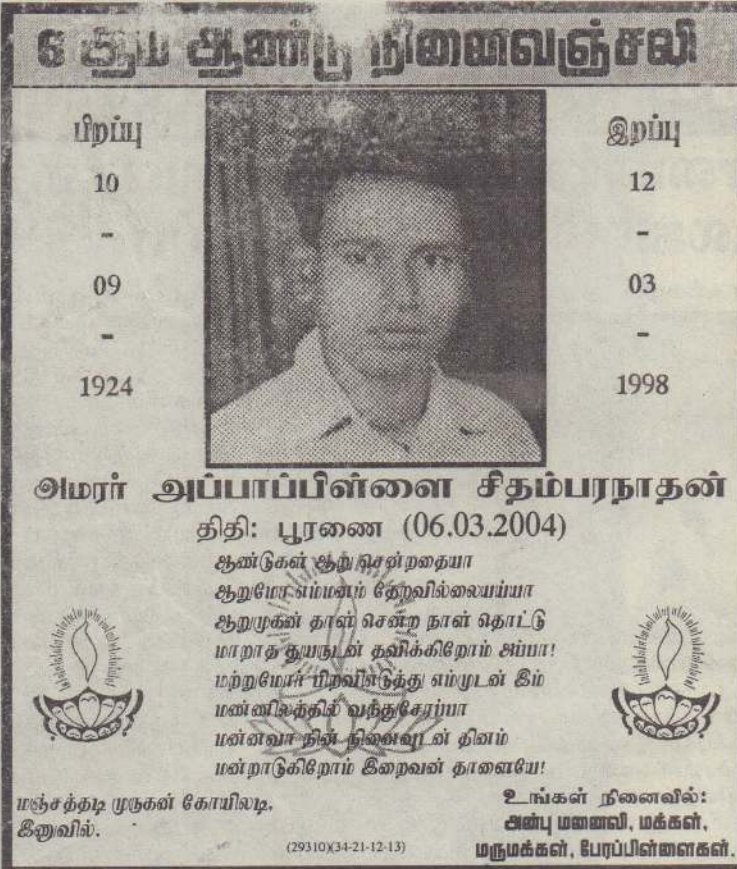 6 ஆம் ஆண்டு நினைவஞ்சலி
பிறப்பு
10
-
09
-
1924
இறப்பு
12
-
03
-
1998
அமரர் அப்பாப்பிள்ளை சிதம்பரநாதன்
திதி: பூரணை (06.03.2004)
ஆண்டுகள் ஆறு சென்றதையா
ஆறுமோ எம்மனம் தேறவில்லையய்யா
ஆறுமுகன் தாள் சென்ற நாள் தொட்டு
மாறாத துயருடன் தவிக்கிறோம் அப்பா!
மற்றுமோர் பிறவிஎடுத்து எம்முடன் இம்
மண்ணிலத்தில் வந்துசேரப்பா
மன்னவா நின் நினைவுடன் தினம்
மன்றாடுகிறோம் இறைவன் தாளையே!
மஞ்சத்தடி முருகன் கோயிலடி,
இனுவில்.
(29310)(34-21-12-13)
உங்கள் நினைவில்:
அன்பு மனைவி, மக்கள்,
மருமக்கள், பேரப்பிள்ளைகள்.